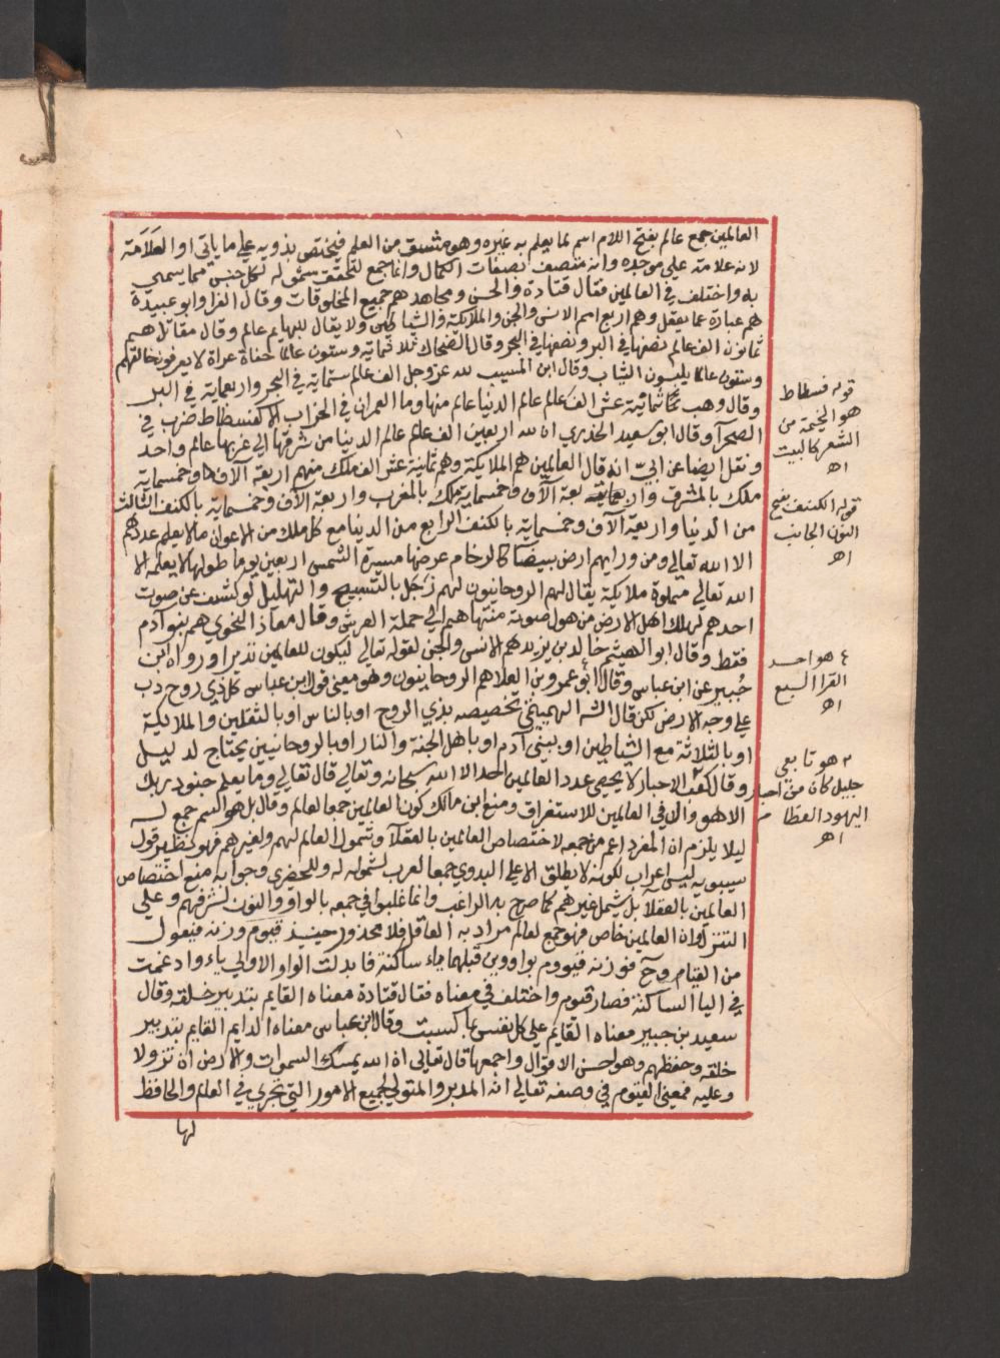 العالمين جمع عالم بفتح اللام اسم لما يعلم به غيره وهو مشتق من العلم فيختص بذويه على ما ياتى او العلامة
لانه علامة على موجده وانه متصف بصفات الكمال وانما جمع لتحقق شموله لكل جنس مما يسمى
به واختلف في العالمين فقال قتادة والحسن ومجاهد هم جميع المخلوقات وقال الفرا وابو عبيدة
هم عبارة عما يعقل وهم اربع امم الانس والجن والملايكة والشياطين ولا يقال للبهايم عالم وقال مقاتل هم
ثمانون الف عالم نصفها في البر ونصفها في البحر وقال الضحاك ثلاثماية وستون عالما حفاة عراة لا يعرفون خالقهم
وستون عالما يلبسون الثياب وقال ابن المسيب لله عز وجل الف عالم ستماية في البحر واربعماية في البر
وقال وهب ثمانية عشر الف عالم عالم الدنيا عالم منها وما العمران في الخراب الا كفسطاط ضرب في
الصحرآ وقال ابو سعيد الخدري ان لله اربعين الف عالم عالم الدنيا من شرقها الى غربها عالم واحد
ونقل ايضا عن ابيّ انه قال العالمين هم الملايكة وهم ثمانية عشر الف ملك منهم اربعة الآف وخمسماية
ملك بالمشرق واربعة الآف وخمسماية ملك بالمغرب واربعة الآف وخمسماية بالكنف الثالث
من الدنيا واربعة الآف وخمسماية بالكنف الرابع من الدنيا مع كل ملك من الاعوان مالا يعلم عددهم
الا الله تعالى ومن ورايهم ارض بيضآ كالرخام عرضها مسيرة الشمس اربعين يوما طولها لا يعلمه الا
الله تعالى مملوة ملايكة يقال لهم الروحانيون لهم زجل بالتسبيح والتهليل لو كشف عن صوت
احدهم لهلك اهل الارض من هول صوته منتهاهم الى حملة العرش وقال معاذ النحوي هم بنو آدم
فقط وقال ابو الهيثم خالد بن يزيد هم الانس والجن لقوله تعالى ليكون للعالمين نذيرا ورواه ابن
جبير عن ابن عباس وقال ابو عمرو بن العلا هم الروحانيون وهو معنى قول ابن عباس كل ذي روح دب
على وجه الارض لكن قال تخصيصه بذي الروح او بالناس او بالثقلين والملايكة
او بالثلاثة مع الشياطين او ببني آدم او باهل الجنة والنار او بالروحانيين يحتاج لدليل
وقال كعب الاحبار لا يحصى عدد العالمين احد الا الله سبحانه وتعالى قال تعالى وما يعلم جنود ربك
الا هو وال في العالمين للاستغراق ومنع ابن مالك كون العالمين جمعا لعالم وقال بل هو اسم جمع له
ليلا يلزم ان المفرد اعم من جمعه لاختصاص العالمين بالعقلآ وشمول العالم لهم ولغيرهم فهو كنظير قول
سيبويه ليس اعراب لكونه لا يطلق الا على البدوي جمعا لعرب لشموله له وللحضرى وجوابه منع اختصاص
العالمين بالعقلا بل يشمل غيرهم كما صرح به الراغب وانما غلبوا في جمعه بالواو والنون لشرفهم وعلى
التنزل وان العالمين خاص فهو جمع لعالم مراد به العاقل فلا محذور حينيذ قيوم وزنه فيعول
من القيام وح فوزنه قيووم بواوين قبلهما ياء ساكنة فابدلت الواو الاولى ياء وادغمت
في اليا الساكنة فصار قيوم واختلف في معناه فقال قتادة معناه القايم بتدبير خلقه وقال
سعيد بن جبير معناه القايم على كل نفس بما كسبت وقال ابن عباس معناه الدايم القايم بتدبير
خلقه وحفظهم وهو احسن الاقوال واجمعها قال تعالى ان الله يمسك السموات والارض ان تزولا
وعليه فمعنى القيوم في وصفه تعالى انه المدبر والمتولي لجميع الامور التي تجري في العالم والحافظ
لها
قوله فسطاط
هو الخيمة من
الشعر كالبيت
اه
قوله الكنف بفتح
النون الجانب
اه
٤ هو احد
القرا السبع
اه
هو تابعي
جليل كان من احبار
اليهود العظا
اه